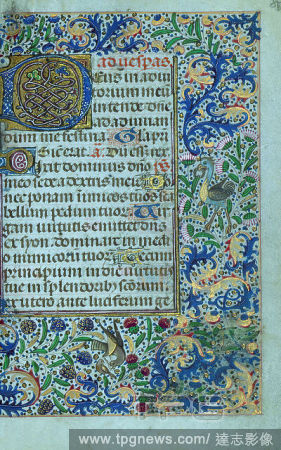 ad vespas
Eus in adiu
torium meu
intende dne
ad adiuuan
dum me festina Glapri
Sicerat a Dū esset rex
Dixit dominus dno
meo sede a dextris meis
nec ponam inimicos tuos sca
bellum pedum tuor
tam uirtutis emittet dns
ex syon dominare in medi
inimicorum tuor Tecum
principium in die uirtutis
tue in splendoribus scorum
ex utero ante luciferum ge
www.tpgnews.com/ 達志影像